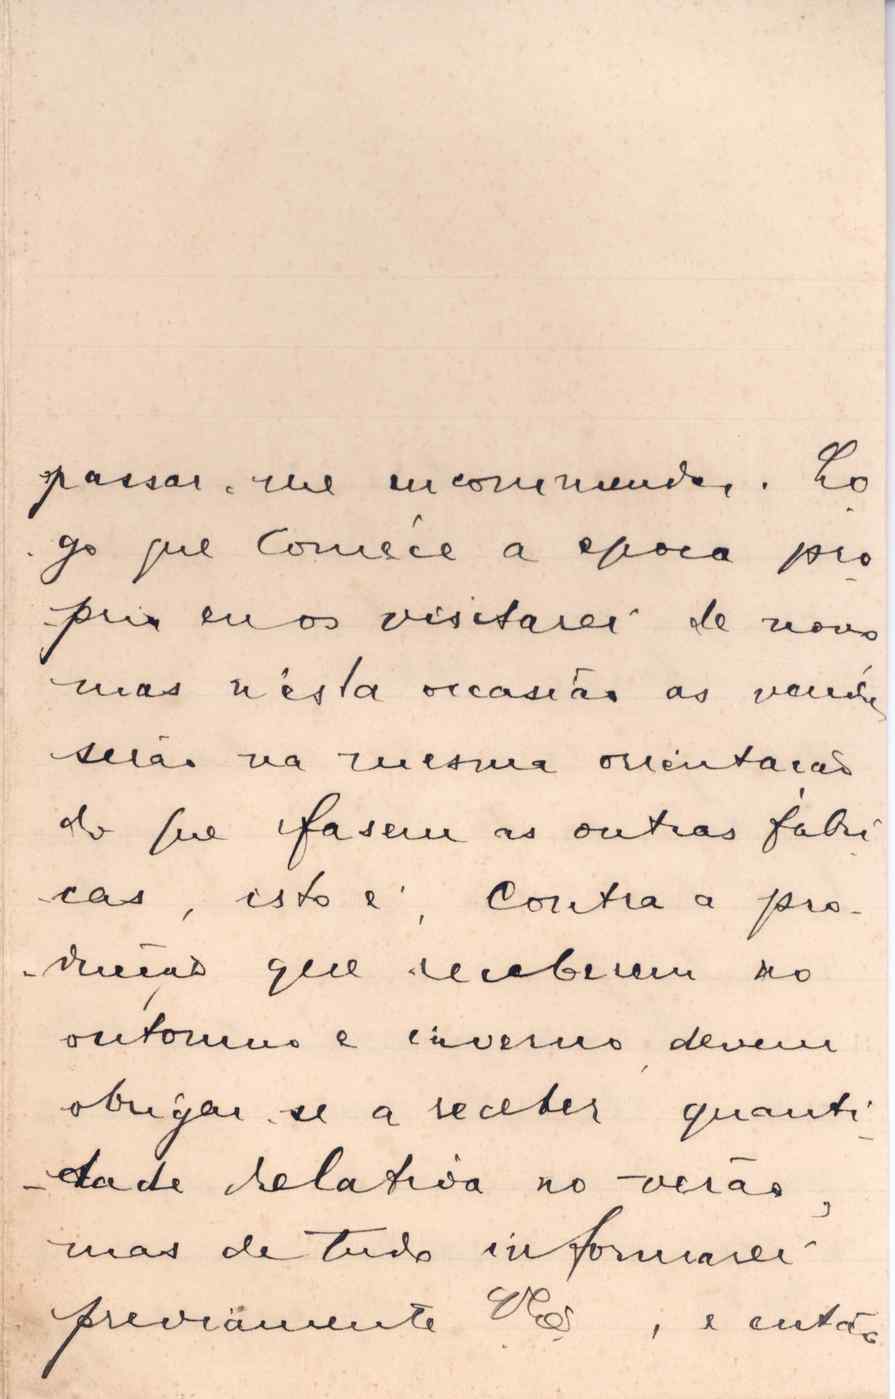 passar-me encommenda. Lo
go que coméce a epoca pro
pria eu os visitarei de novo
mas n'ésta occasião as vendas
serão na mesma orientação
do que fasem as outras fábri
cas, isto é, contra a pro-
-ducção que receberem no
outomno e inverno, devem
obrigar-se a receber quanti-
-dade relativa no verão,
mas de tudo informarei
previamente VCas, e então